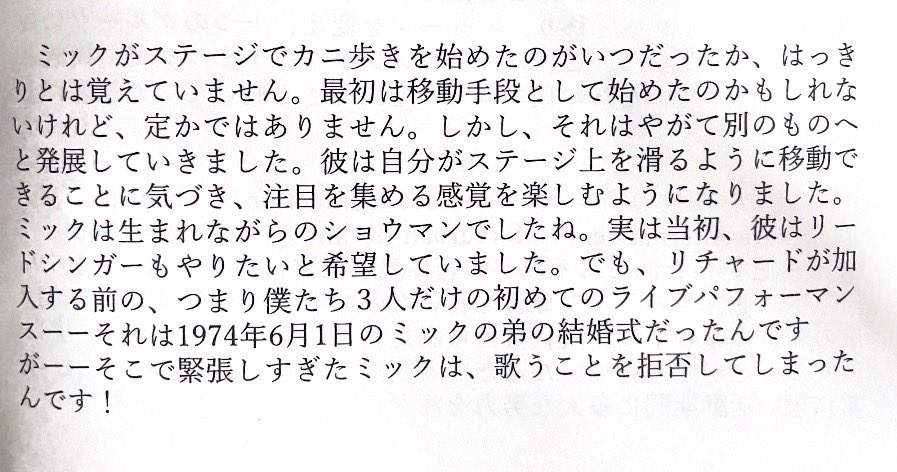 ミックがステージでカニ歩きを始めたのがいつだったか、はっき
りとは覚えていません。最初は移動手段として始めたのかもしれな
いけれど、定かではありません。しかし、それはやがて別のものへ
と発展していきました。彼は自分がステージ上を滑るように移動で
きることに気づき、注目を集める感覚を楽しむようになりました。
ミックは生まれながらのショウマンでしたね。実は当初、彼はリー
ドシンガーもやりたいと希望していました。でも、リチャードが加
入する前の、つまり僕たち３人だけの初めてのライブパフォーマン
スーーそれは1974年6月1日のミックの弟の結婚式だったんです
がーーそこで緊張しすぎたミックは、歌うことを拒否してしまった
んです！